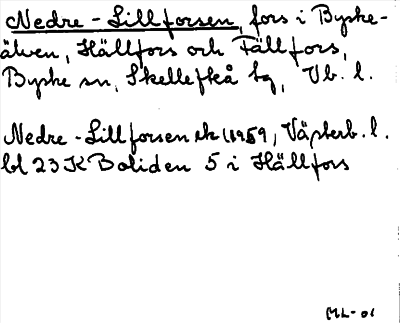 Nedre-Lillforsen, fors i Byske-
älven, Hällfors och Fällfors,
Byske sn, Skellefteå tg, Vb. l.
Nedre-Lillforsen ek (1959, Västerb. l.
bl 23 K Boliden 5 i Hällfors
ML-01